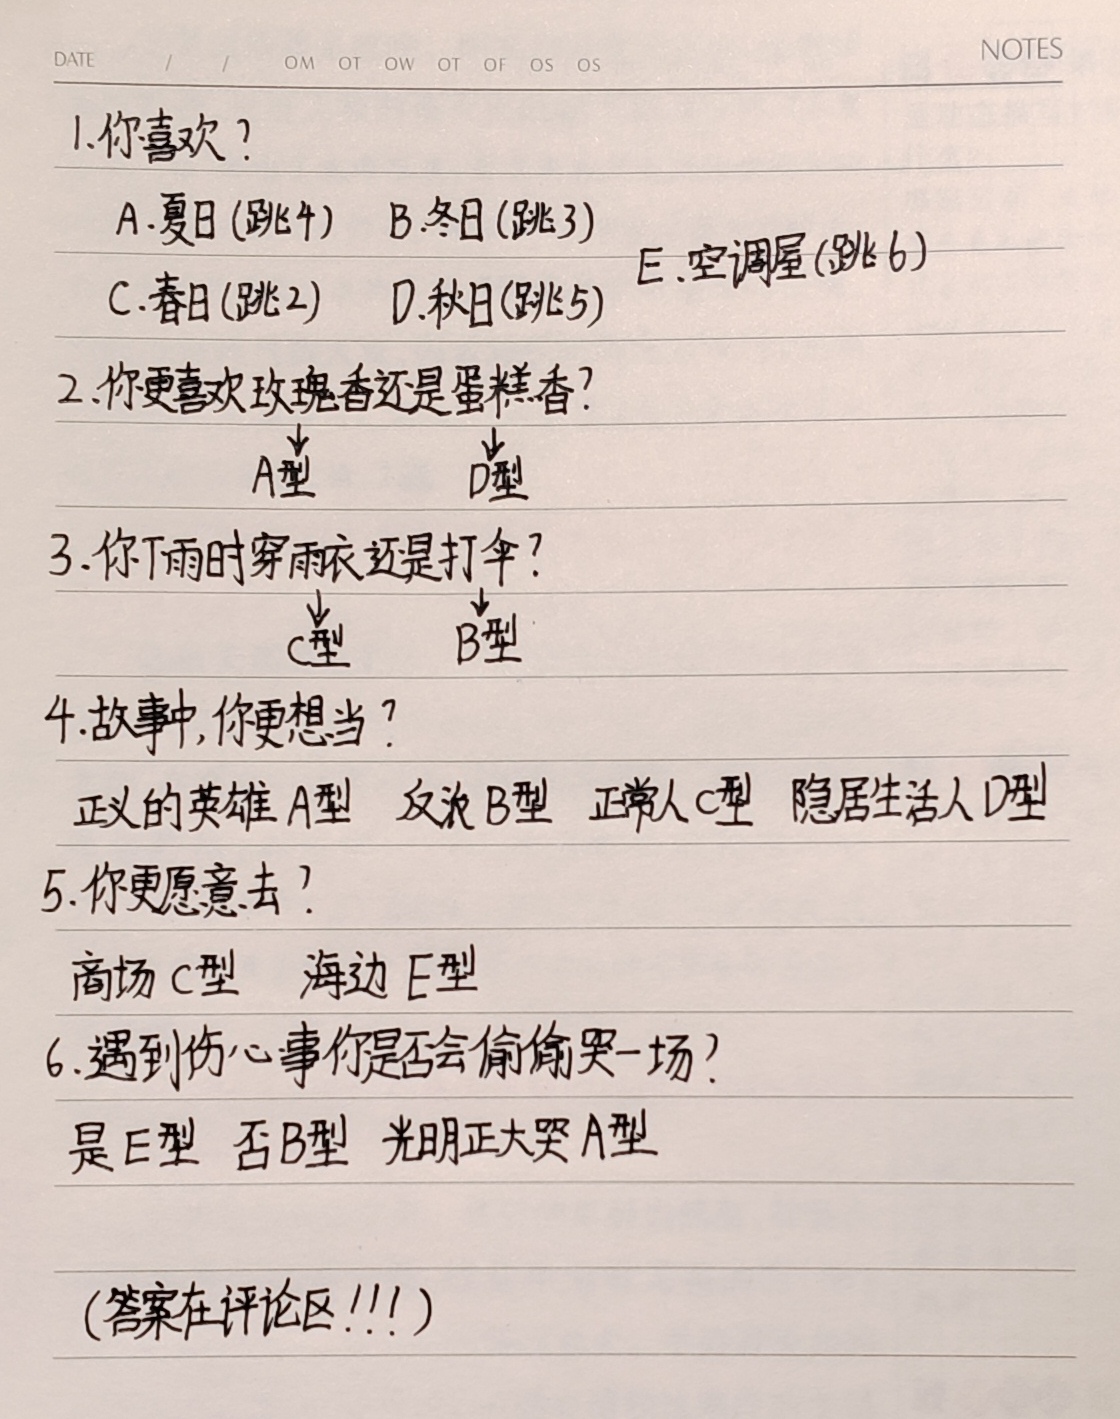 DATE / / OM OT OW OT OF OS OS NOTES
1.你喜欢?
A.夏日(跳4) B.冬日(跳3)
E.空调屋(跳6)
C.春日(跳2) D.秋日(跳5)
2.你更喜欢玫瑰香还是蛋糕香?
↓ ↓
A型 D型
3.你下雨时穿雨衣还是打伞?
↓ ↓
C型 B型
4.故事中,你更想当?
正义的英雄A型 反派B型 正常人C型 隐居生活人D型
5.你更愿意去?
商场C型 海边E型
6.遇到伤心事你是否会偷偷哭一场?
是E型 否B型 光明正大哭A型
(答案在评论区!!!)